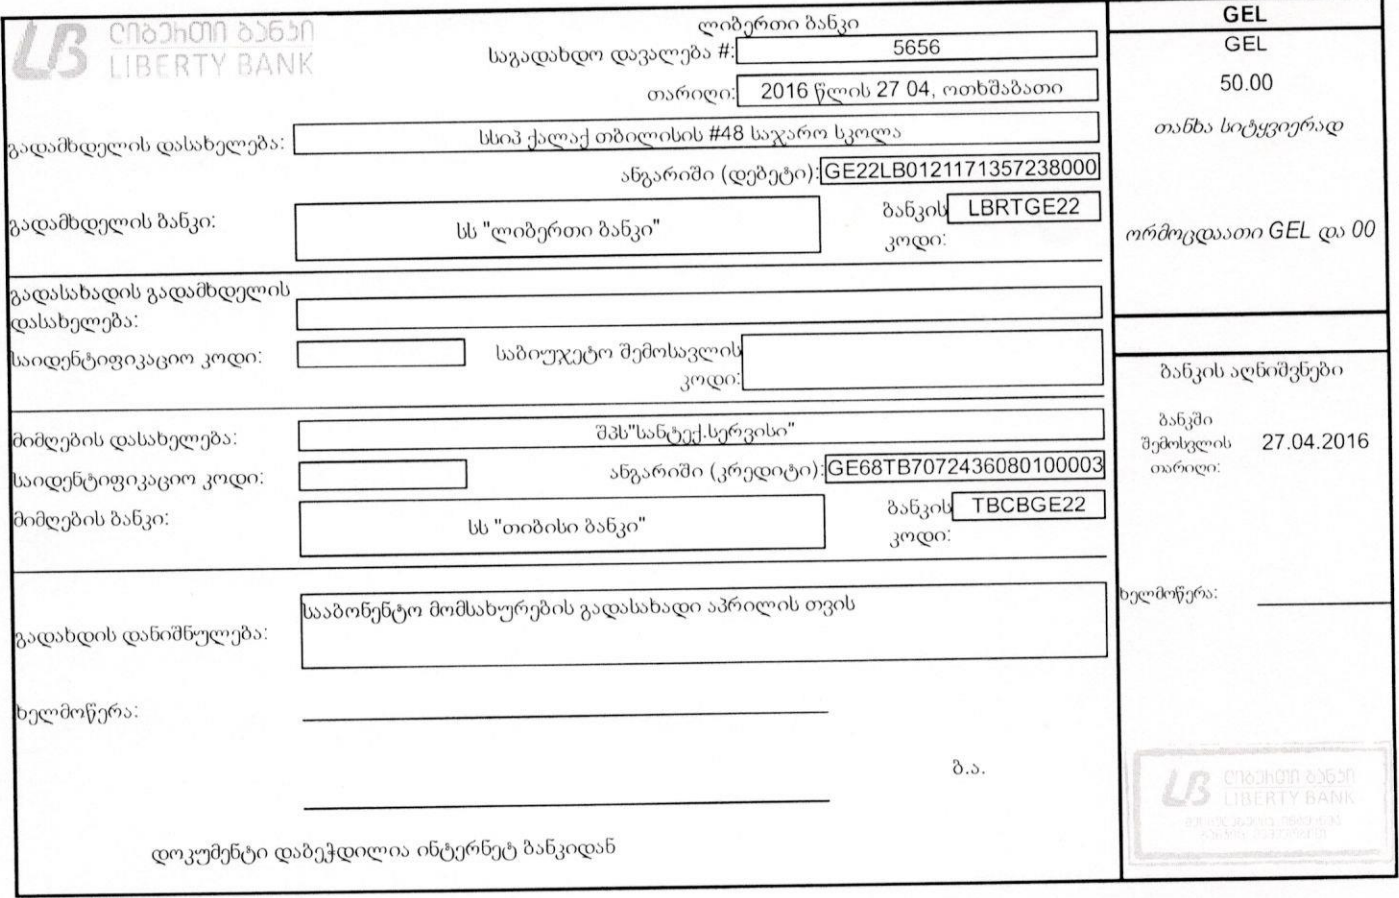 ლიბერთი ბანკი
LIBERTY BANK
ლიბერთი ბანკი
საგადახდო დავალება #: 5656
თარიღი: 2016 წლის 27 04, ოთხშაბათი
გადამხდელის დასახელება: სსიპ ქალაქ თბილისის #48 საჯარო სკოლა
ანგარიში (დებეტი): GE22LB0121171357238000
გადამხდელის ბანკი: სს "ლიბერთი ბანკი" ბანკის კოდი: LBRTGE22
გადასახადის გადამხდელის
დასახელება:
საიდენტიფიკაციო კოდი: საბიუჯეტო შემოსავლის
კოდი:
მიმღების დასახელება: შპს"სანტექ.სერვისი"
საიდენტიფიკაციო კოდი: ანგარიში (კრედიტი): GE68TB7072436080100003
მიმღების ბანკი: სს "თიბისი ბანკი" ბანკის კოდი: TBCBGE22
გადახდის დანიშნულება: სააბონენტო მომსახურების გადასახადი აპრილის თვის
ხელმოწერა:
ბ.ა.
დოკუმენტი დაბეჭდილია ინტერნეტ ბანკიდან
GEL
GEL
50.00
თანხა სიტყვიერად
ორმოცდაათი GEL და 00
ბანკის აღნიშვნები
ბანკში
შემოსვლის 27.04.2016
თარიღი:
ხელმოწერა:
ლიბერთი ბანკი
LIBERTY BANK